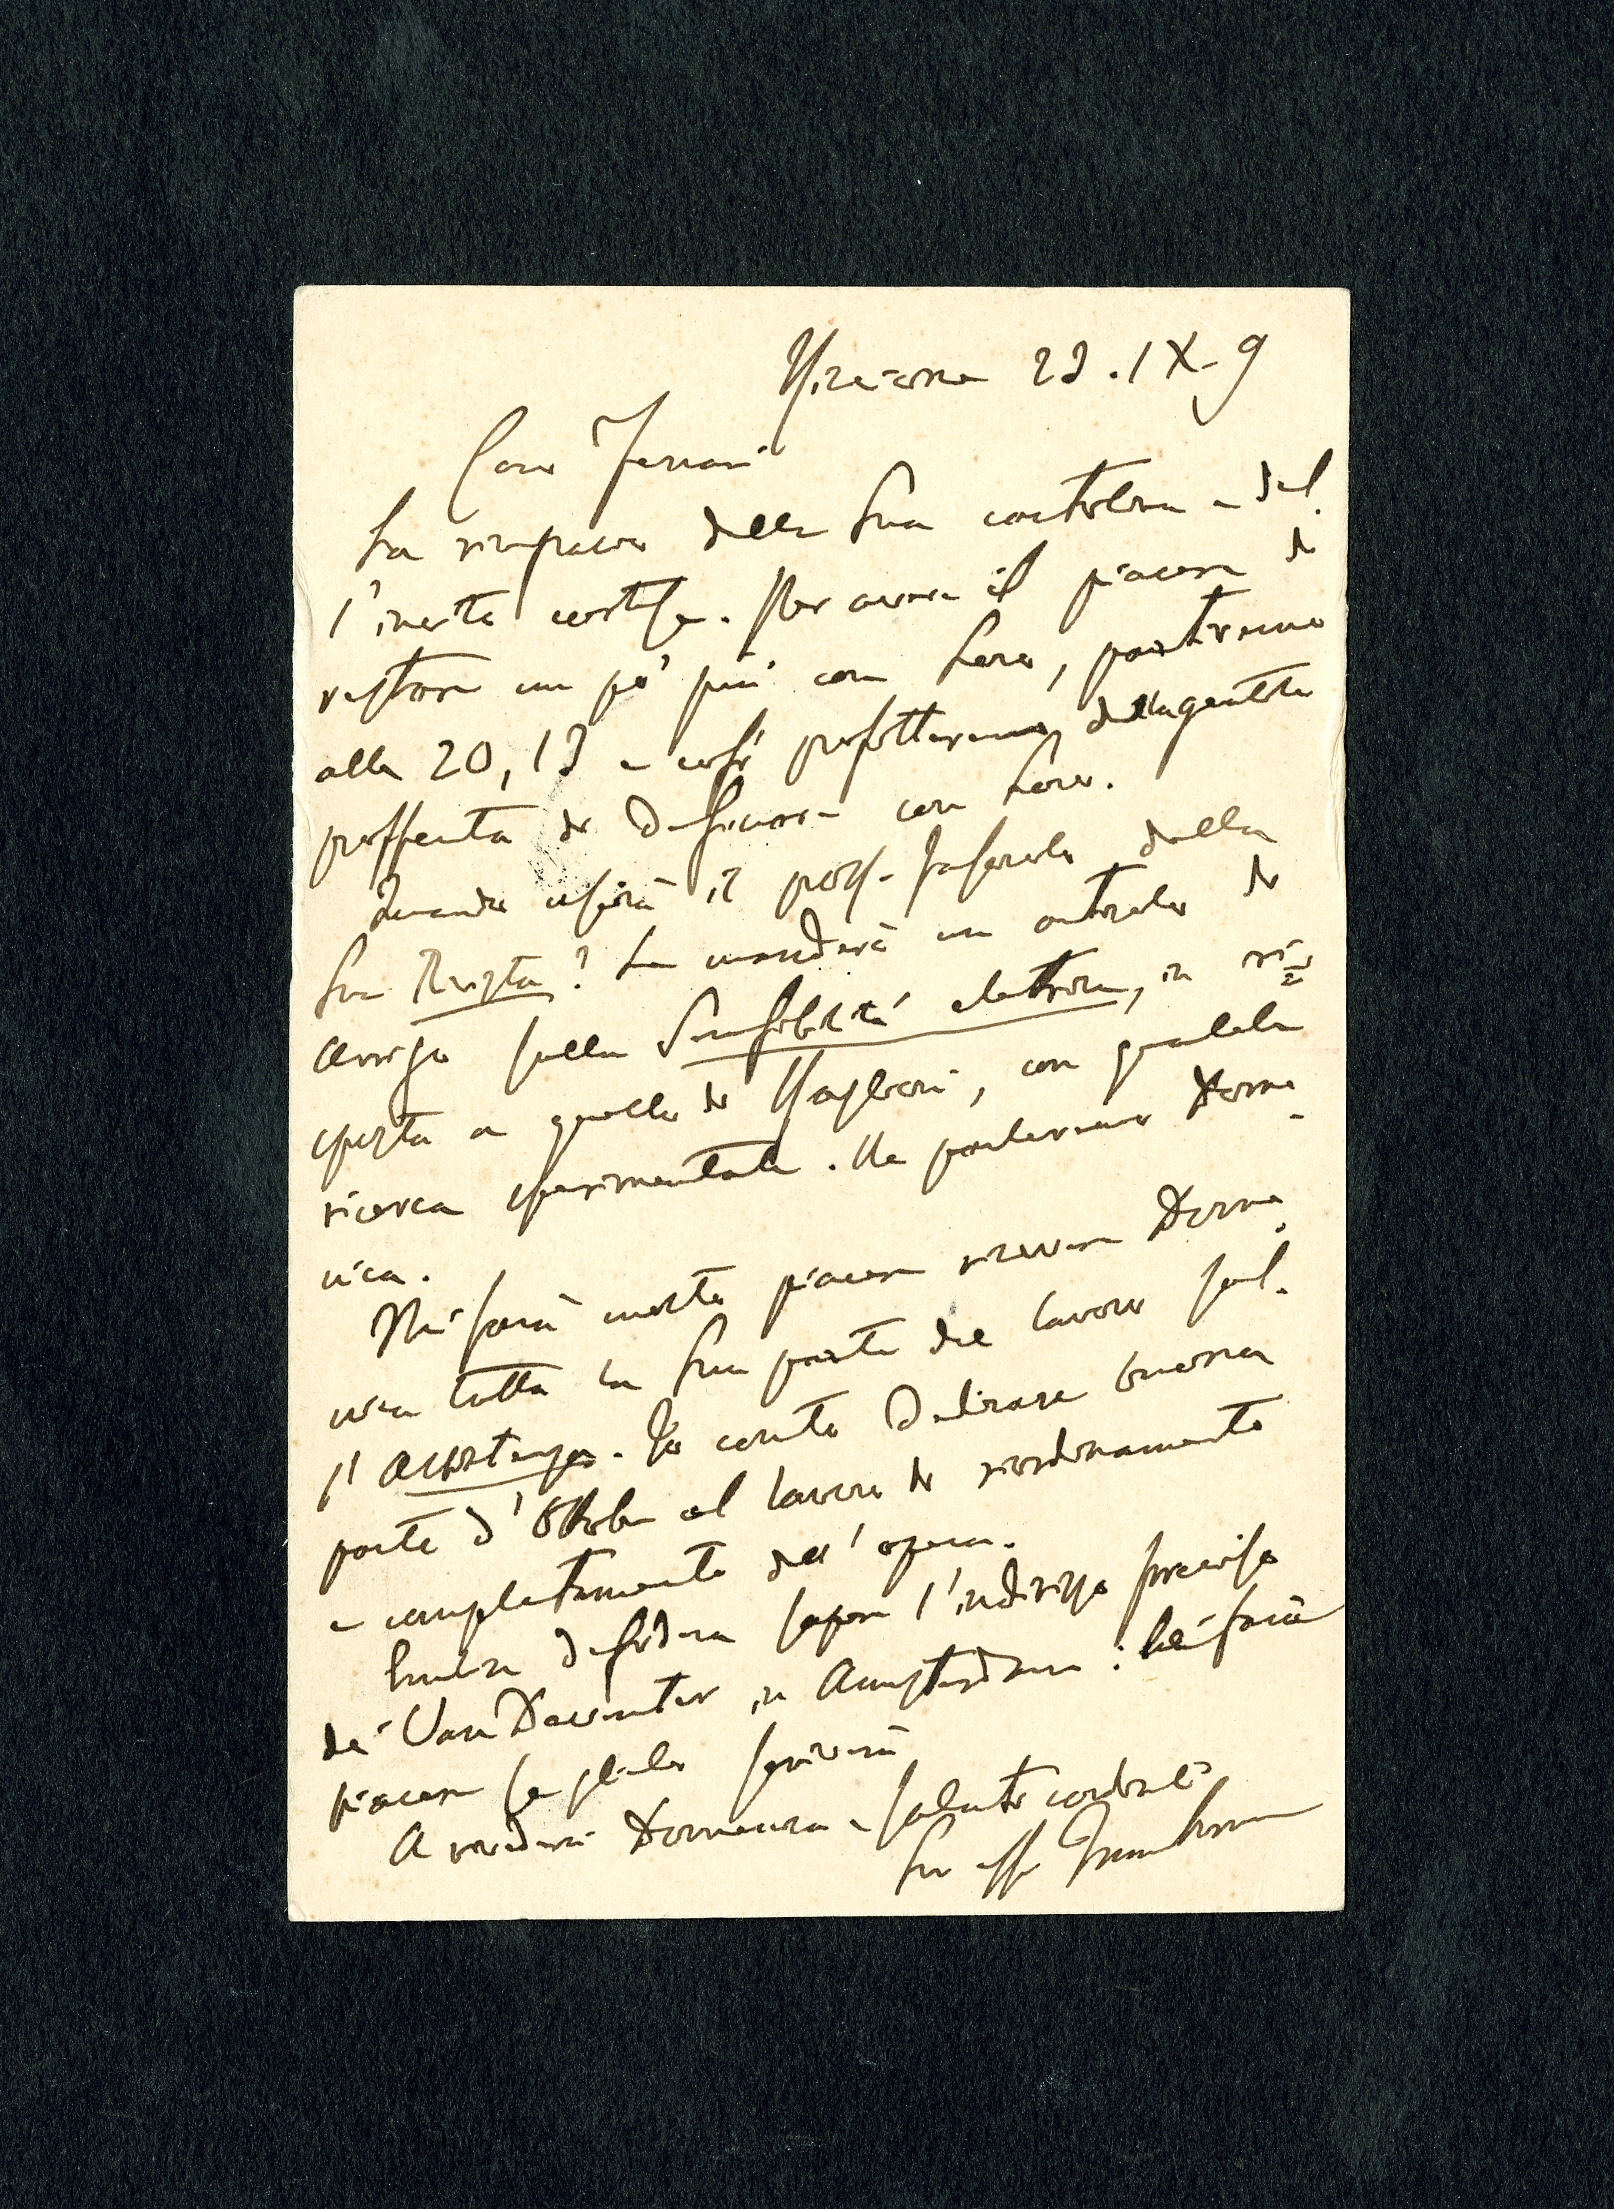 23.IX-9
Caro Ferrari
La ringrazio della Sua cartolina e del
l'invito cortese. Per avere il piacere di
restare un po' più con Loro, partiremo
alle 20,13 e così profitteremo della gentile
profferta di desinare con Loro.
Quando uscirà il pross. fascicolo della
Sua Rivista? Le manderò un articolo di
Arrigo sulla Sensibilità elettrica, in ri=
sposta a quello di, con qualche
ricerca sperimentale. Ne parleremo Dome-
nica.
Mi sarà molto piacere ricevere Dome-
nica tutta la Sua parte del lavoro sul-
l'Assistenza. Io conto dedicare buona
parte d'Ottobre al lavoro di riordinamento
e completamento dell'opera.
desidera sapere l'indirizzo preciso
di Van Deventer in Amsterdam: Lei farà
piacere se glielo scriverà
A rivederci Domenica e saluti cordiali
Suo aff Tamburini